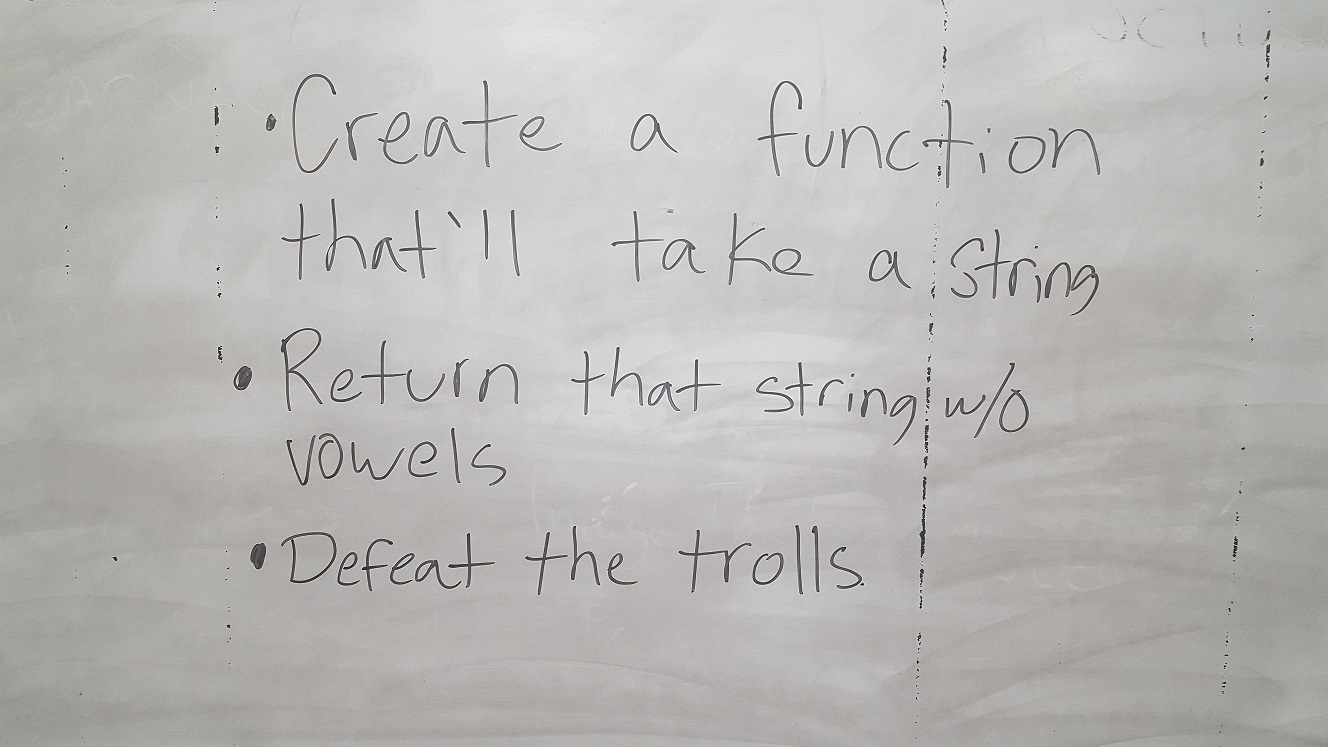 • Create a function
that'll take a string
• Return that string w/o
vowels
• Defeat the trolls.